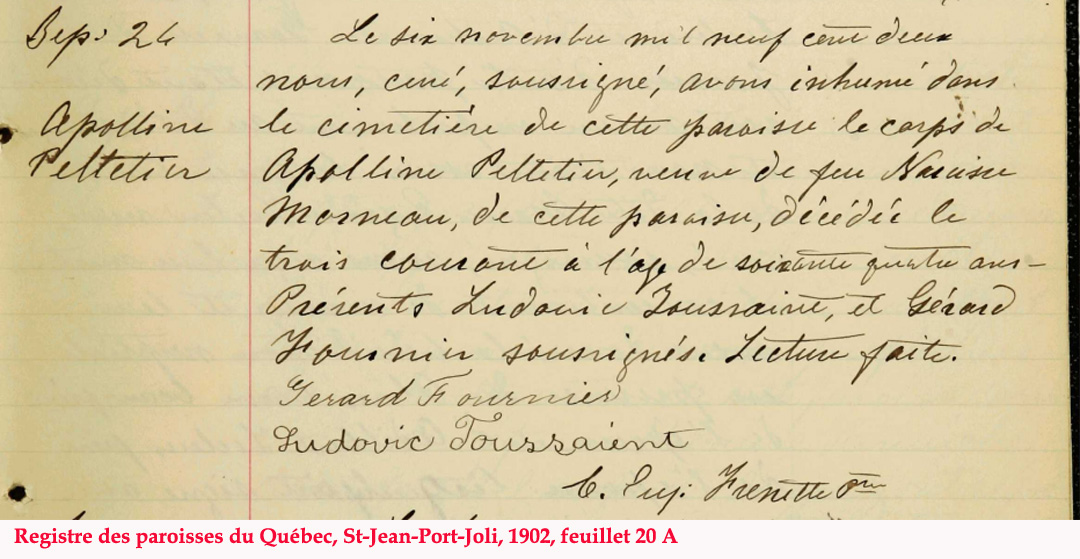 Sep: 24
Apolline
Pelletier
Le six novembre mil neuf cent deux
nous, curé, soussigné, avons inhumé dans
le cimetière de cette paroisse le corps de
Apolline Pelletier, veuve de feu Narcisse
Morneau, de cette paroisse, décédée le
trois courant à l'age de soixante quatre ans—
Présents Ludovic Toussaint, et Gérard
Fournier soussignés. Lecture faite.
Gerard Fournier
Ludovic Toussaient
C. Eug. Frenette Ptre
Registre des paroisses du Québec, St-Jean-Port-Joli, 1902, feuillet 20 A